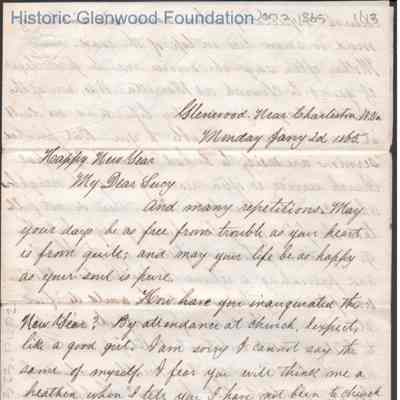 Historic Glenwood Foundation
Jan 2 1865
1/13
Glenwood. Near Charleston W.Va
Monday Jany 2d 1865
Happy New Year
My Dear Lucy
And many repetitions. May
your days be as free from trouble as your heart
is from guile; and may your life be as happy
as your soul is pure.
How have you inaugurated the
New Year? By attendance at church, I expect,
like a good girl. I am sorry I cannot say the
same of myself. I fear you will think me a
heathen when I tell you I have not been to church